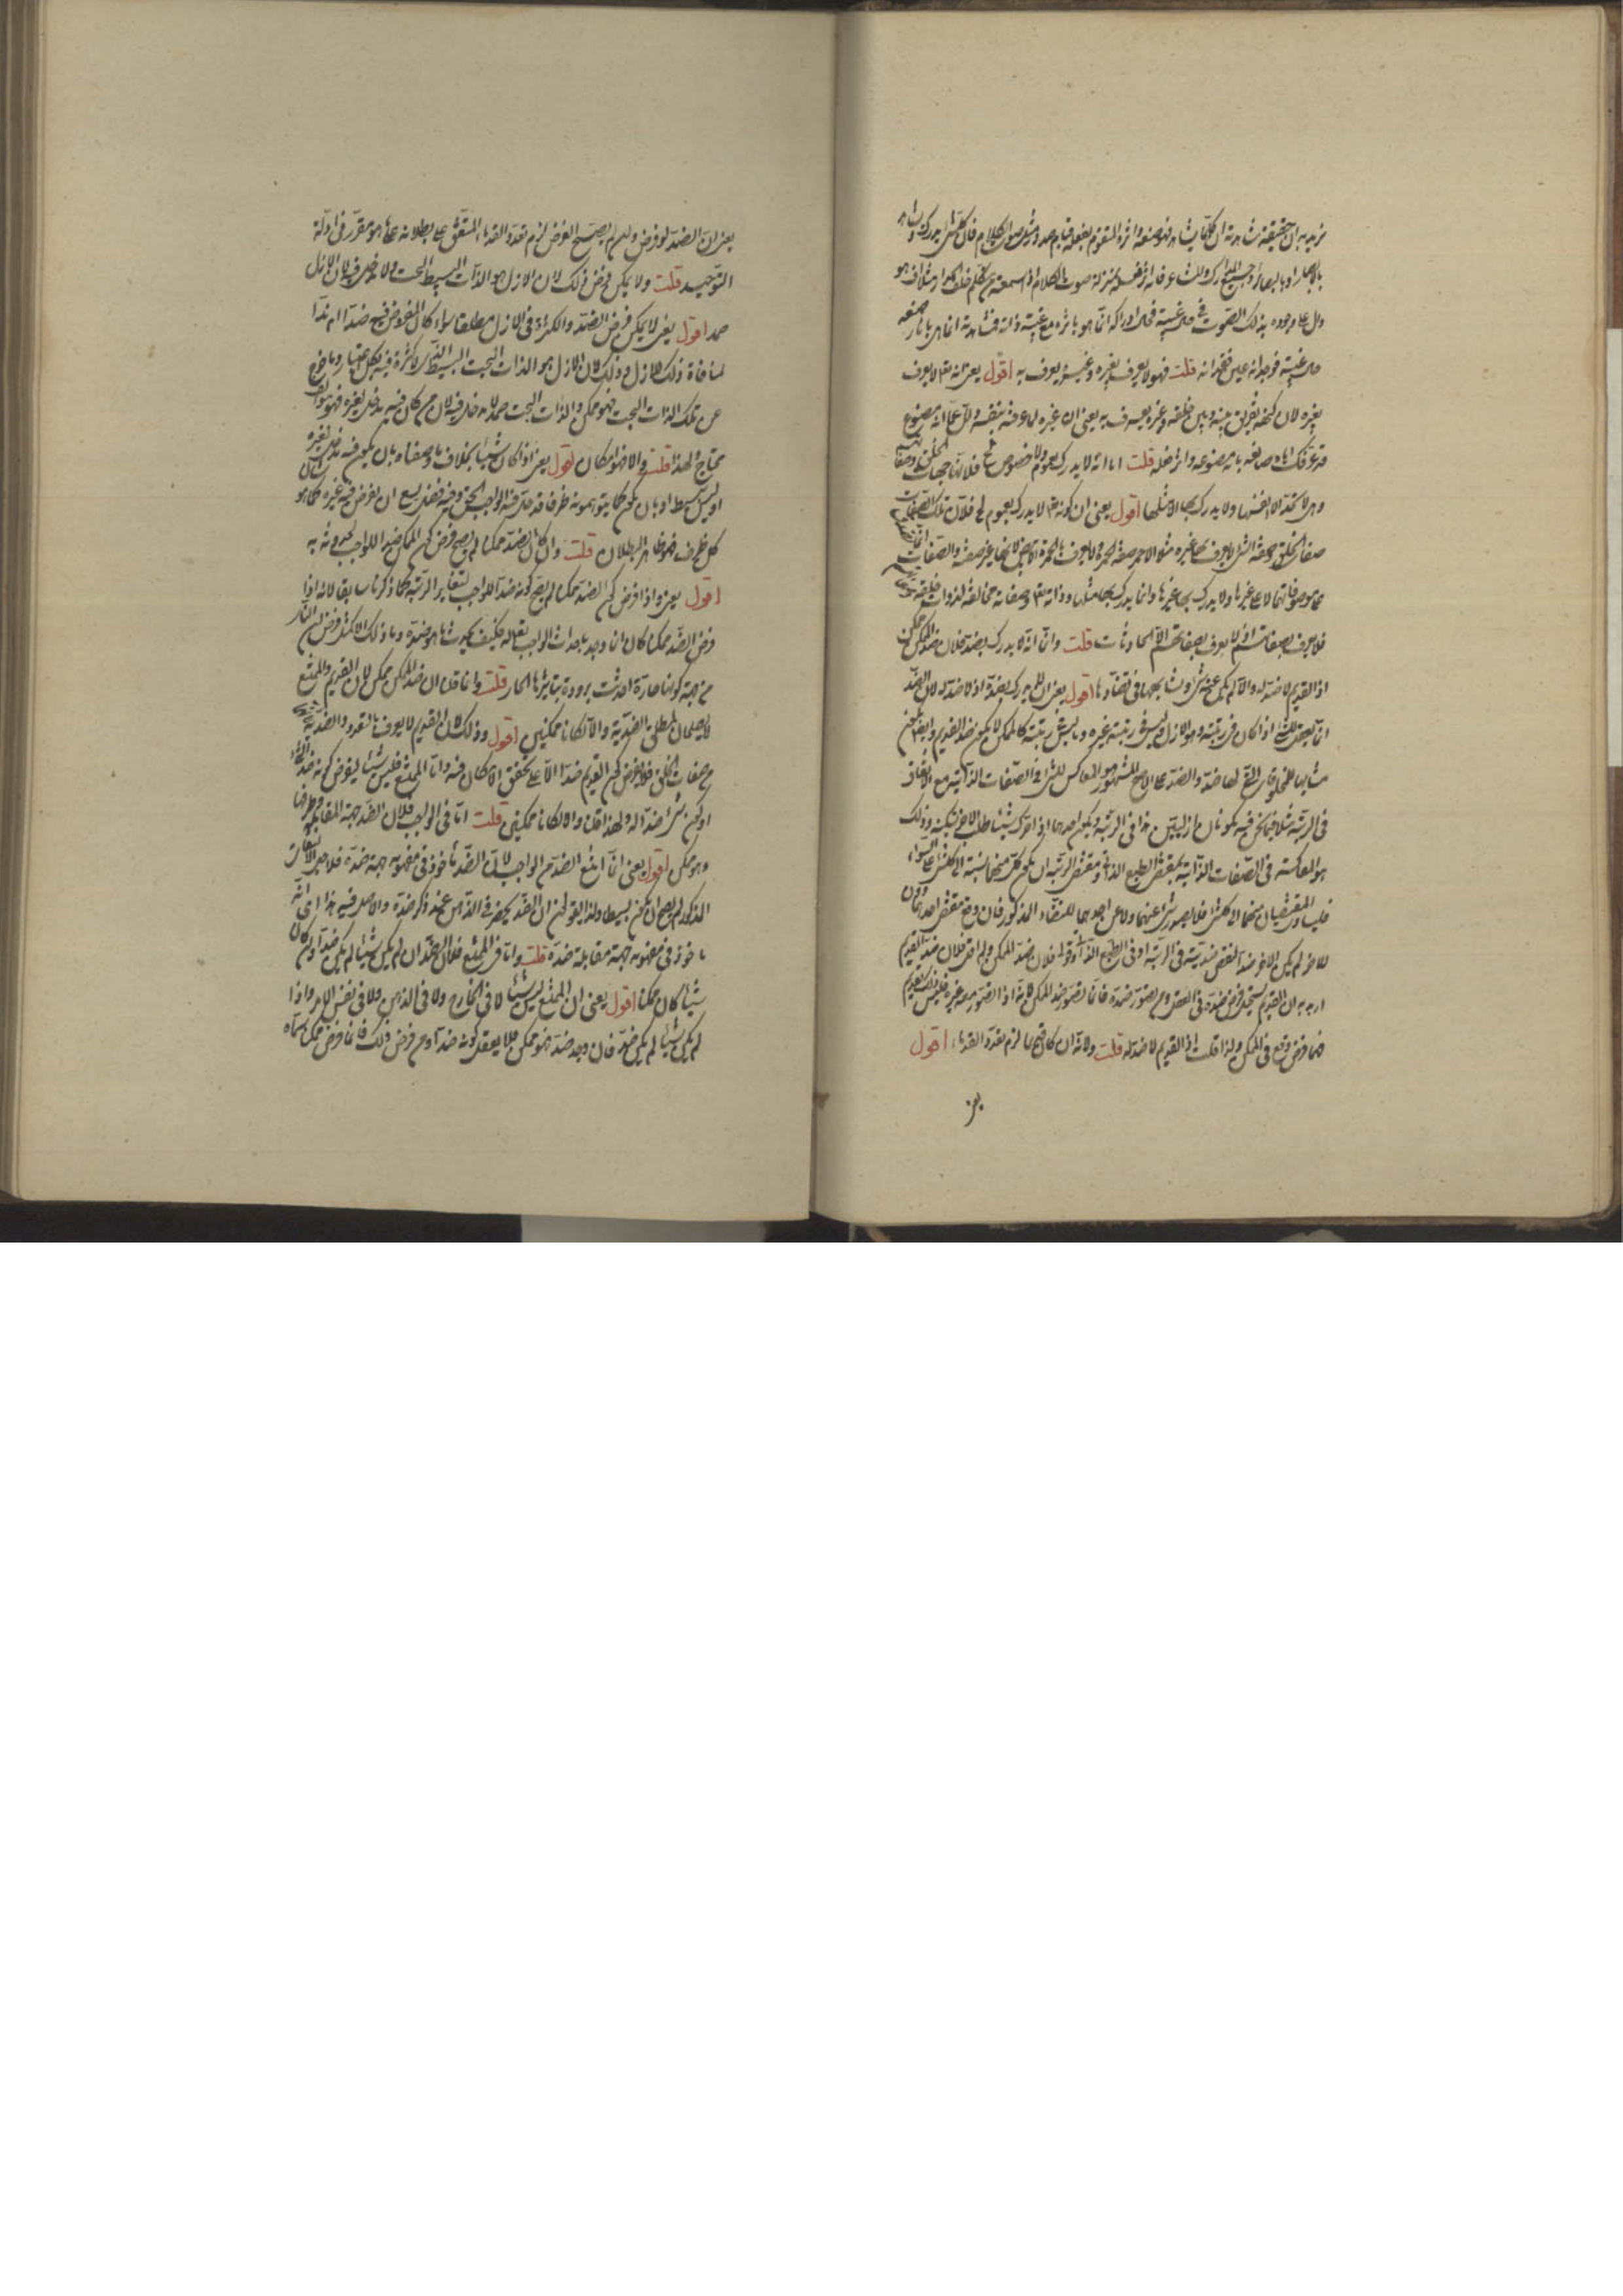 نريد به ان حقيقة مشاهدته ان كلما يشاهد فهو صنعه واثره المتقوم بفعله قيام صدور مثل صوت الكلام فان كل شيء يدرك ويشاهد
بالابصار او بالبصائر وجميع المدارك والمشاعر فانه اثر فعله بمنزلة صوت الكلام اذا سمعته من متكلم خلف الجدار مثلا فهو
دل على وجوده بذلك الصوت في حال غيبته فحال ادراكه انما هو باثره مع غيبة ذاته فمشاهدته انما هي باثار صنعه
حال غيبته فوجدانه عين فقدانه قلت فهو لا يعرف بغيره وغيره يعرف به اقول يعني انه تعالى لا يعرف
بغيره لان كنهه تفريق بينه وبين خلقه وغيره يعرف به يعني ان غيره لما عرفه بنفسه ودل على انه مصنوع
فتعرفك اياه صانعه بانه مصنوعه واثر فعله قلت اما انه لا يدرك بعموم ولا خصوص الخ فلانها جهات الخلق وصفاتهم
وهي لا تحد الا انفسها ولا يدرك بها الا مثلها اقول يعني ان كونه تعالى لا يدرك بعموم الخ فلان تلك الصفات
صفات الخلق وصفة الشيء لا يعرف بها غيره مثلا الاحمر صفة الحمرة ولا يعرف بالحمرة الابيض لانها غير صفته والصفات انما
هي موصوفاتها لا على غيرها ولا يدرك بها غيرها وانما يدرك بها مثلها وذاته تعالى وصفاته مخالفة لذوات خلقه
فلا يعرف بصفاتهم اذ لا يعرف بصفاتهم الا الحادثات قلت واما انه لا يدرك بضد فلان ضد الممكن ممكن
اذ القديم لا ضد له والا لم يكن عنه شيء او تشابها في تضادها اقول يعني ان الله لا يدرك بضده اذ لا ضد له لان الضد
انما يعقل للشيء اذا كان في رتبته وهو الازل وليس في رتبته غيره وما ليس في رتبته كالممكن لا يكون ضد القديم وايضا يكون
مشابها للمخلوقات التي لها ضد والضد على الاصح المشهور هو المعاكس للشيء في الصفات الذاتية مع الاتفاق
في الرتبة مثلا فيما نحن فيه يكونان ازليين هذا في الرتبة ويكون احدهما اذا حرك شيئا طلب الاخر تسكينه وذلك
هو المعاكسة في الصفات الذاتية بمقتضى الطبع الذاتي ومقتضى الرتبة ان يكون كل منهما نسبته الى كل شيء على السواء
فليسا والمقتضيان منهما الى كل شيء فلا يصدر شيء عنهما ولا عن احدهما للتضاد المذكور فان وقع مقتضى احدهما دون
الاخر لم يكن الاخر ضدا لنقص ضديته في الرتبة او في الطبع الذاتي وقولي فلان ضد الممكن ولم اقل فلان ضد القديم
اريد به ان القديم يستحيل فرض ضده في العقل ومن تصور ضده فانما تصور ضد الممكن لانه اذا تصور معه غيره فليس ذلك بقديم
فما فرض وقع في الممكن ولذا قلت اذ القديم لا ضد له قلت ولانه ان كان قديما لزم تعدد القدماء اقول
يعني
يعني ان الضد لو فرض قديما ولم يصح الفرض لزم تعدد القدماء المتفق على بطلانه على ما هو مقرر في ادلة
التوحيد قلت ولا يمكن فرض ذلك لان الازل هو الذات البسيط البحت ولا مدخل فيه لان الازل
صمد اقول يعني لا يمكن فرض الضد والكثرة في الازل مطلقا سواء كان المفروض فيه ضدا ام ندا
لمنافاة ذلك للازل وذلك لان الازل هو الذات البحت البسيط الذي لا كثرة فيه بكل اعتبار وما خرج
عن تلك الذات البحت فهو ممكن والذات البحت صمد لا مدخل فيه لان من كان فيه مدخل لغيره فهو ايضا
محتاج ولهذا قلت والا فهو امكان اقول يعني اذا كان شيئا بخلاف ما وصفناه بان يكون فيه مدخل لغيره
او ليس ببسيط او بان يكون كما يتوهمونه ظرفا قد حل فيه الواجب الحق وفيه فضل يسع ان يفرض فيه غيره كما هو شان
كل ظرف فهو ظاهر البطلان قلت وان كان الضد ممكنا لم يصح فرض كون الممكن ضدا للواجب لحدوثه به
اقول يعني واذا فرض كون الضد ممكنا لم يصح كونه ضدا للواجب لتغاير الرتبة كما ذكرنا سابقا لانه اذا
فرض الضد ممكنا كان انما وجد باحداث الواجب تعالى له فكيف يحدث ما هو ضده وما ذلك الا كمثل فرض ان النار
من جهة كونها حارة احدثت برودة بتاثيرها الحار قلت وانما قلنا ان ضد الممكن ممكن لان القديم والممتنع
لا يصلحان لمطلق الضدية والا لكانا ممكنين اقول وذلك لان القديم لا يعرف بالتعدد والضدية
من صفات الخلق فلا يفرض كون القديم ضدا الا على تحقق الامكان فيه واما الممتنع فليس شيئا ليفرض كونه ضدا
او كون شيء ضدا له ولهذا قلنا والا لكانا ممكنين قلت اما في الواجب فلان الضد جهة المقابلة وطرفها
وهو ممكن اقول يعني انما امتنع الضد من الواجب لان الضد ماخوذ في مفهومه جهة ضده فلاجل الالتفات
المذكور لم يصح ان يكون بسيطا ولذا يقولون ان الضد يحضر في الذهن عند ذكر ضده والاصل فيه هذا اي انه
ماخوذ في مفهومه جهة مقابلة ضده قلت واما في الممتنع فلان الضد ان لم يكن شيئا لم يكن ضدا وان كان
شيئا كان ممكنا اقول يعني ان الممتنع ليس شيئا لا في الخارج ولا في الذهن ولا في نفس الامر واذا
لم يكن شيئا لم يكن ضد فان وجد ضد فهو ممكن فلا يعقل كونه ضدا ومن فرض ذلك فانما فرض ممكنا سماه